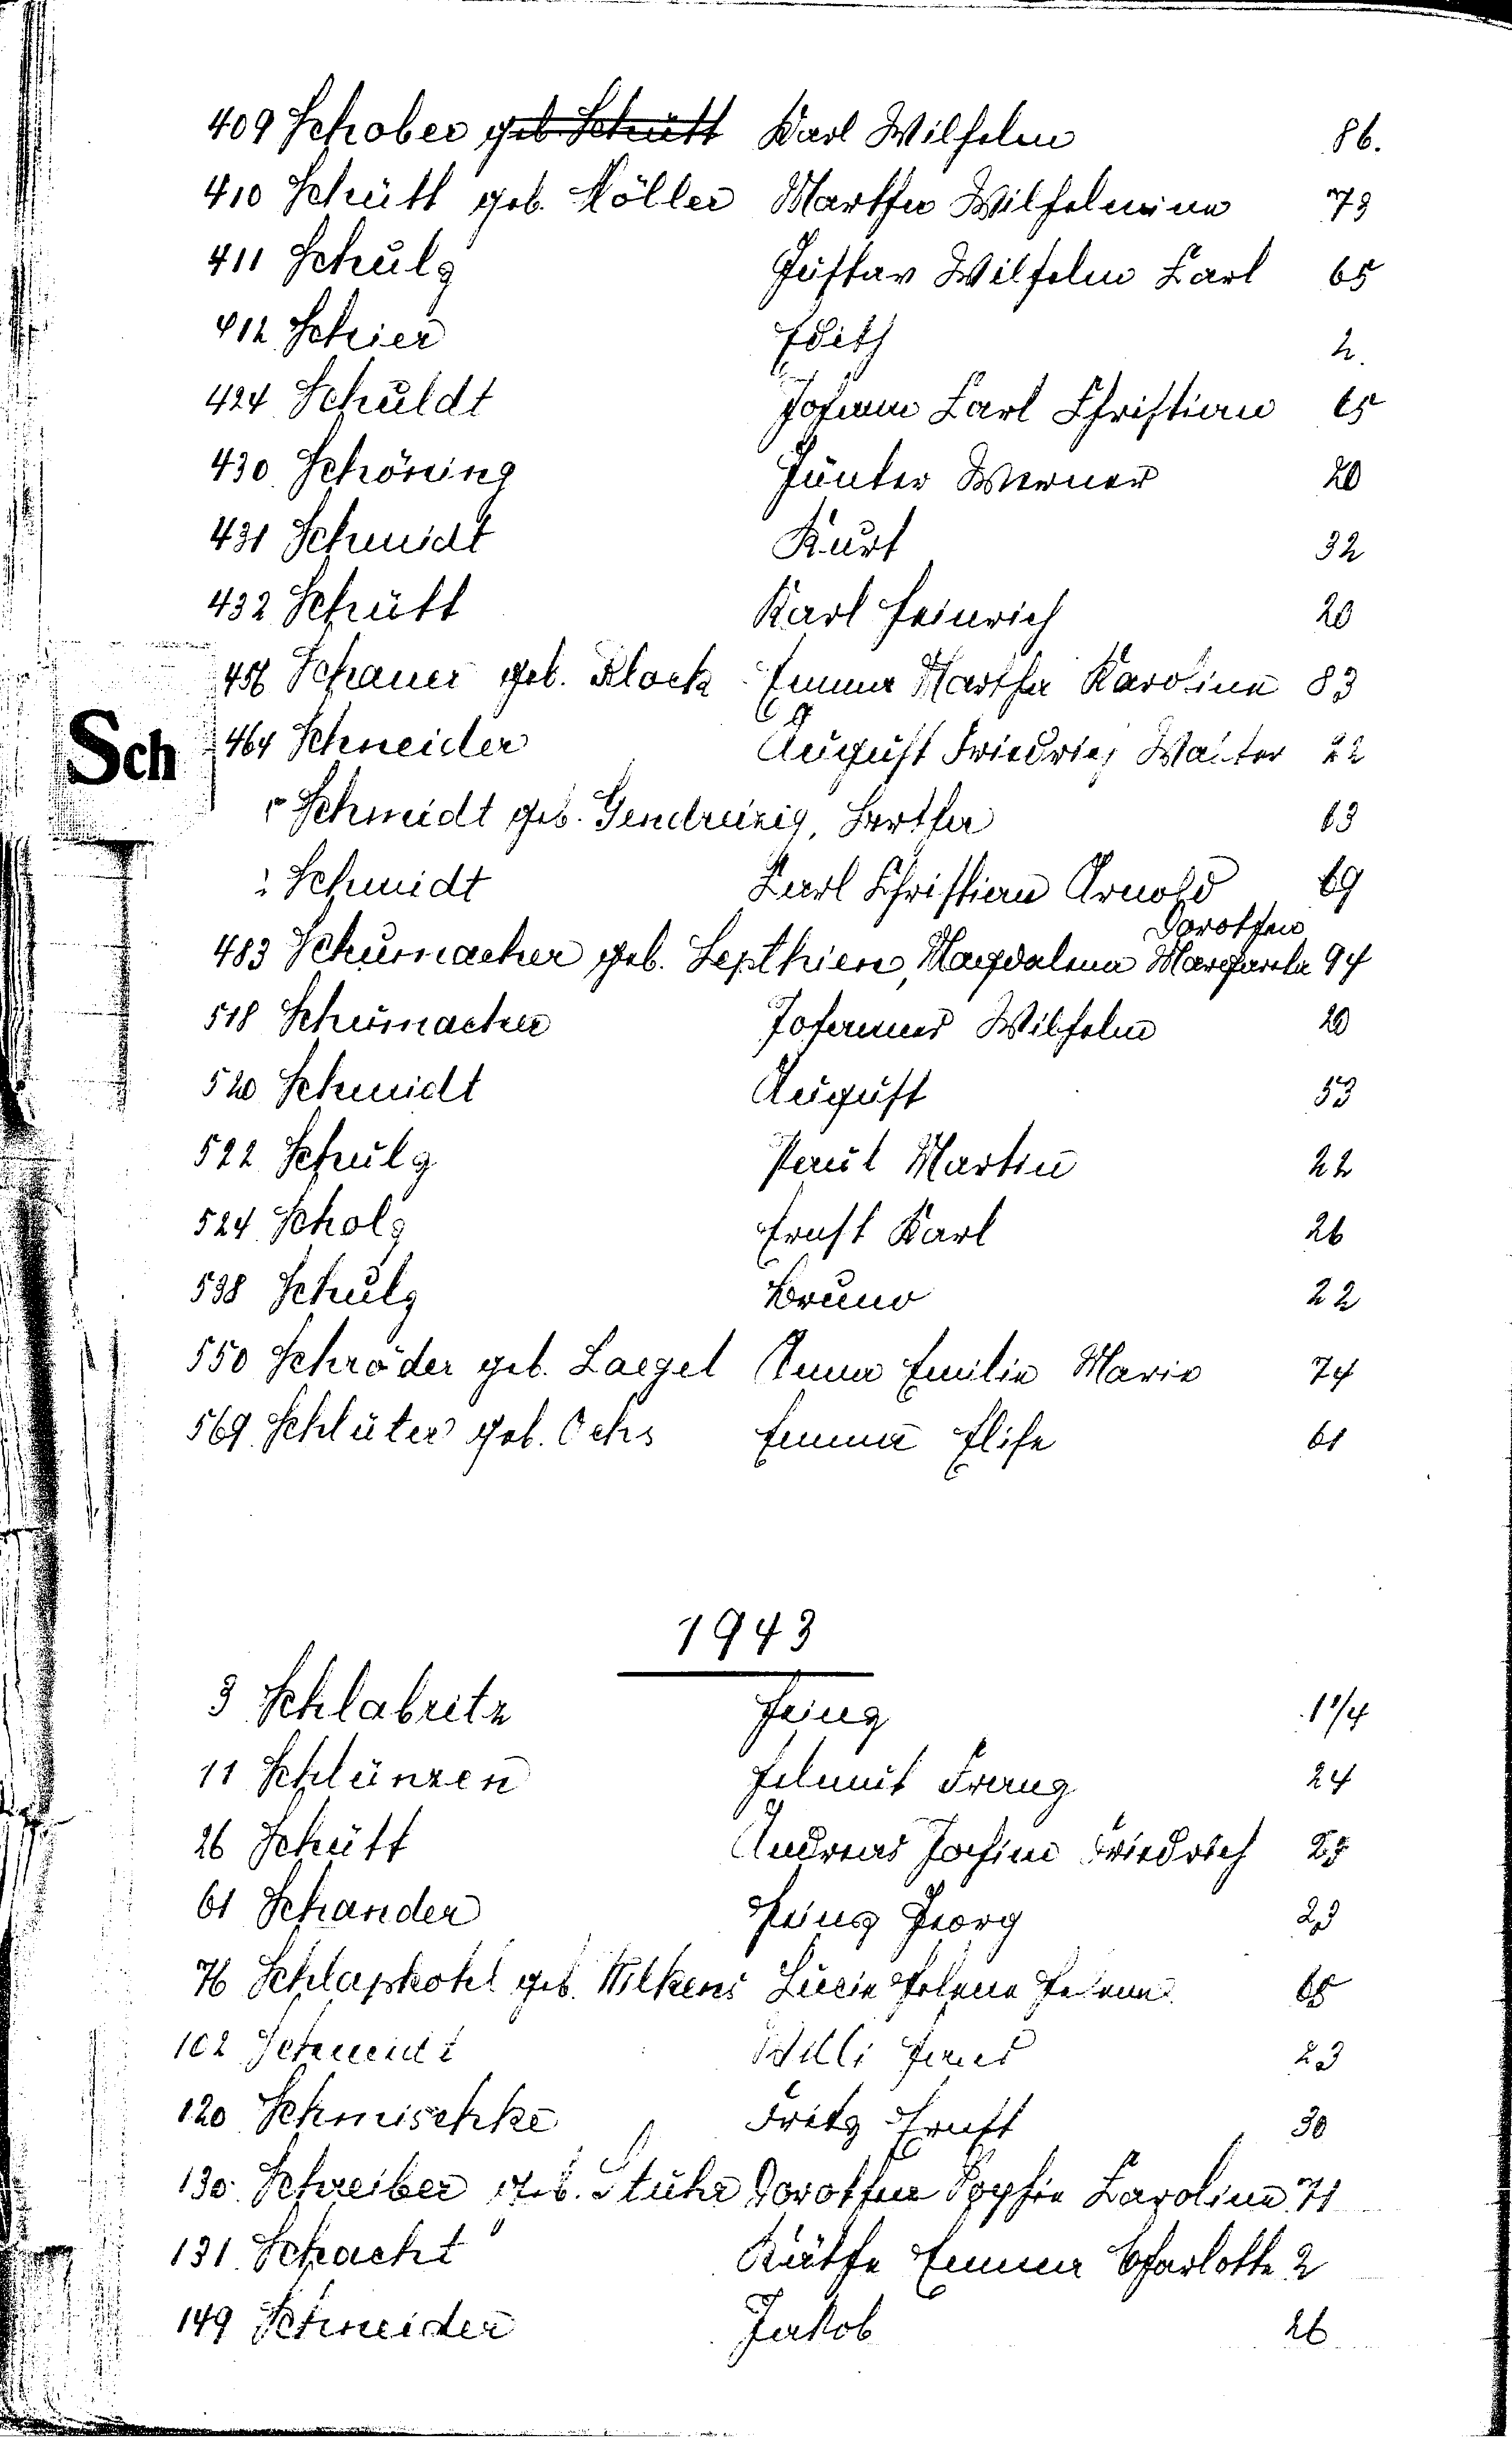 409 Schober geb. Schütt Karl Wilhelm 86.
410 Schütt geb. Möller Martha Wilhelmine 73
411 Schulz Gustav Wilhelm Carl 65
412 Schier Edith 2.
424 Schuldt Johann Carl Christian 65
430 Schöning Günter Werner 20
431 Schmidt Kurt 32
432 Schütt Karl Heinrich 20
456 Schauer geb. Block Emma Martha Karoline 83
Sch
464 Schneider August Friedrich Walter 22
Schmidt geb. Gendreizig, Bertha 63
Schmidt Carl Christian Arnold 69
Dorothea
483 Schumacher geb. Lepthien, Magdalena Margareta 94
518 Schumacher Johannes Wilhelm 20
520 Schmidt August 53
522 Schulz Paul Martin 22
524 Scholz Ernst Karl 26
538 Schulz Bruno 22
550 Schröder geb. Laezel Anna Emilie Marie 74
569 Schlüter geb. Ochs Emma Elise 61
1943
3 Schlabritz Heinz 1 1/4
11 Schlünzen Helmut Franz 24
26 Schütt Andreas Jochim Friedrich 25
61 Schander Heinz Georg 23
76 Schlapkohl geb. Wilkens Lucie Helene 65
102 Schmidt Willi Hans 23
120 Schmischke Fritz Ernst 30
130. Schreiber geb. Stuhr Dorothea Sophie Caroline 71
131. Schacht Käthe Emma Charlotte 2
149 Schneider Jakob 26